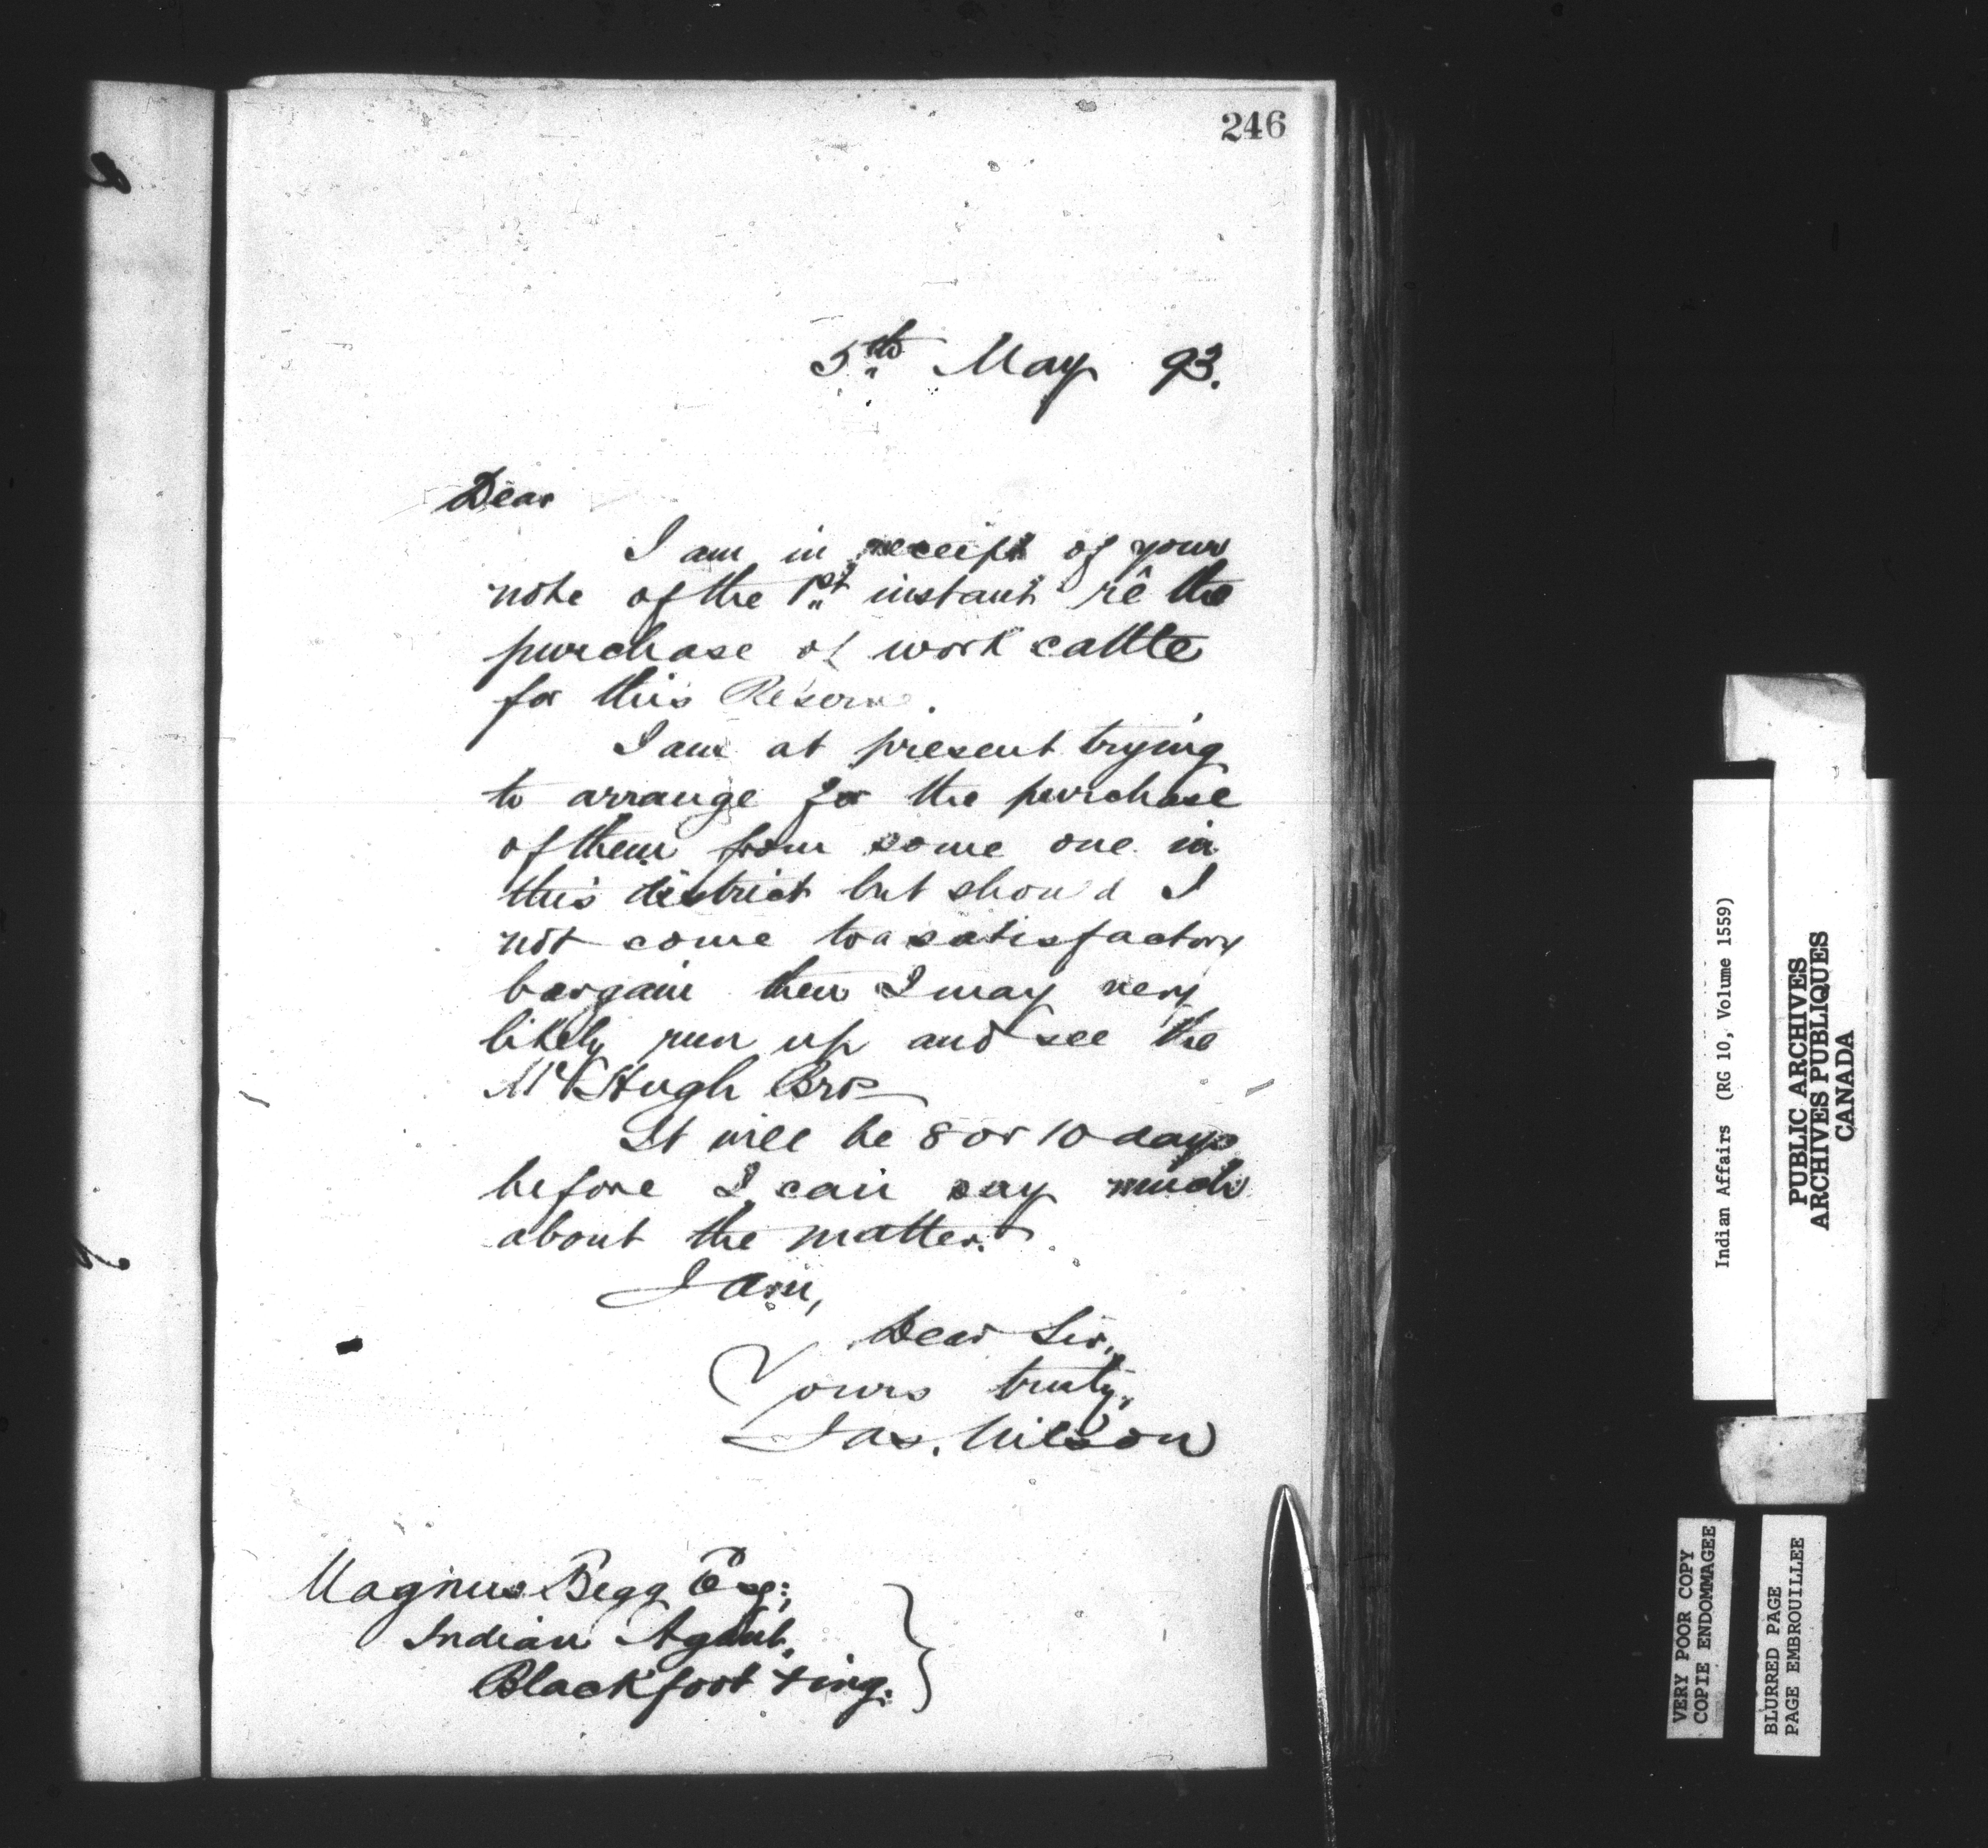 246
5th May 93.
Dear
I am in receipt of your
note of the 1st instant rê the
purchase of work cattle
for this Reserve.
I am at present trying
to arrange for the purchase
of them from some one in
this district but should I
not come to a satisfactory
bargain then I may very
likely run up and see the
McHugh Bros
It will be 8 or 10 days
before I can say much
about the matter.
I am,
Dear Sir,
Yours truly,
Jas. Wilson
Magnus Begg Esq;
Indian Agent,
Blackfoot Xing.
Indian Affairs (RG 10, Volume 1559)
PUBLIC ARCHIVES
ARCHIVES PUBLIQUES
CANADA
VERY POOR COPY
COPIE ENDOMMAGEE
BLURRED PAGE
PAGE EMBROUILLEE